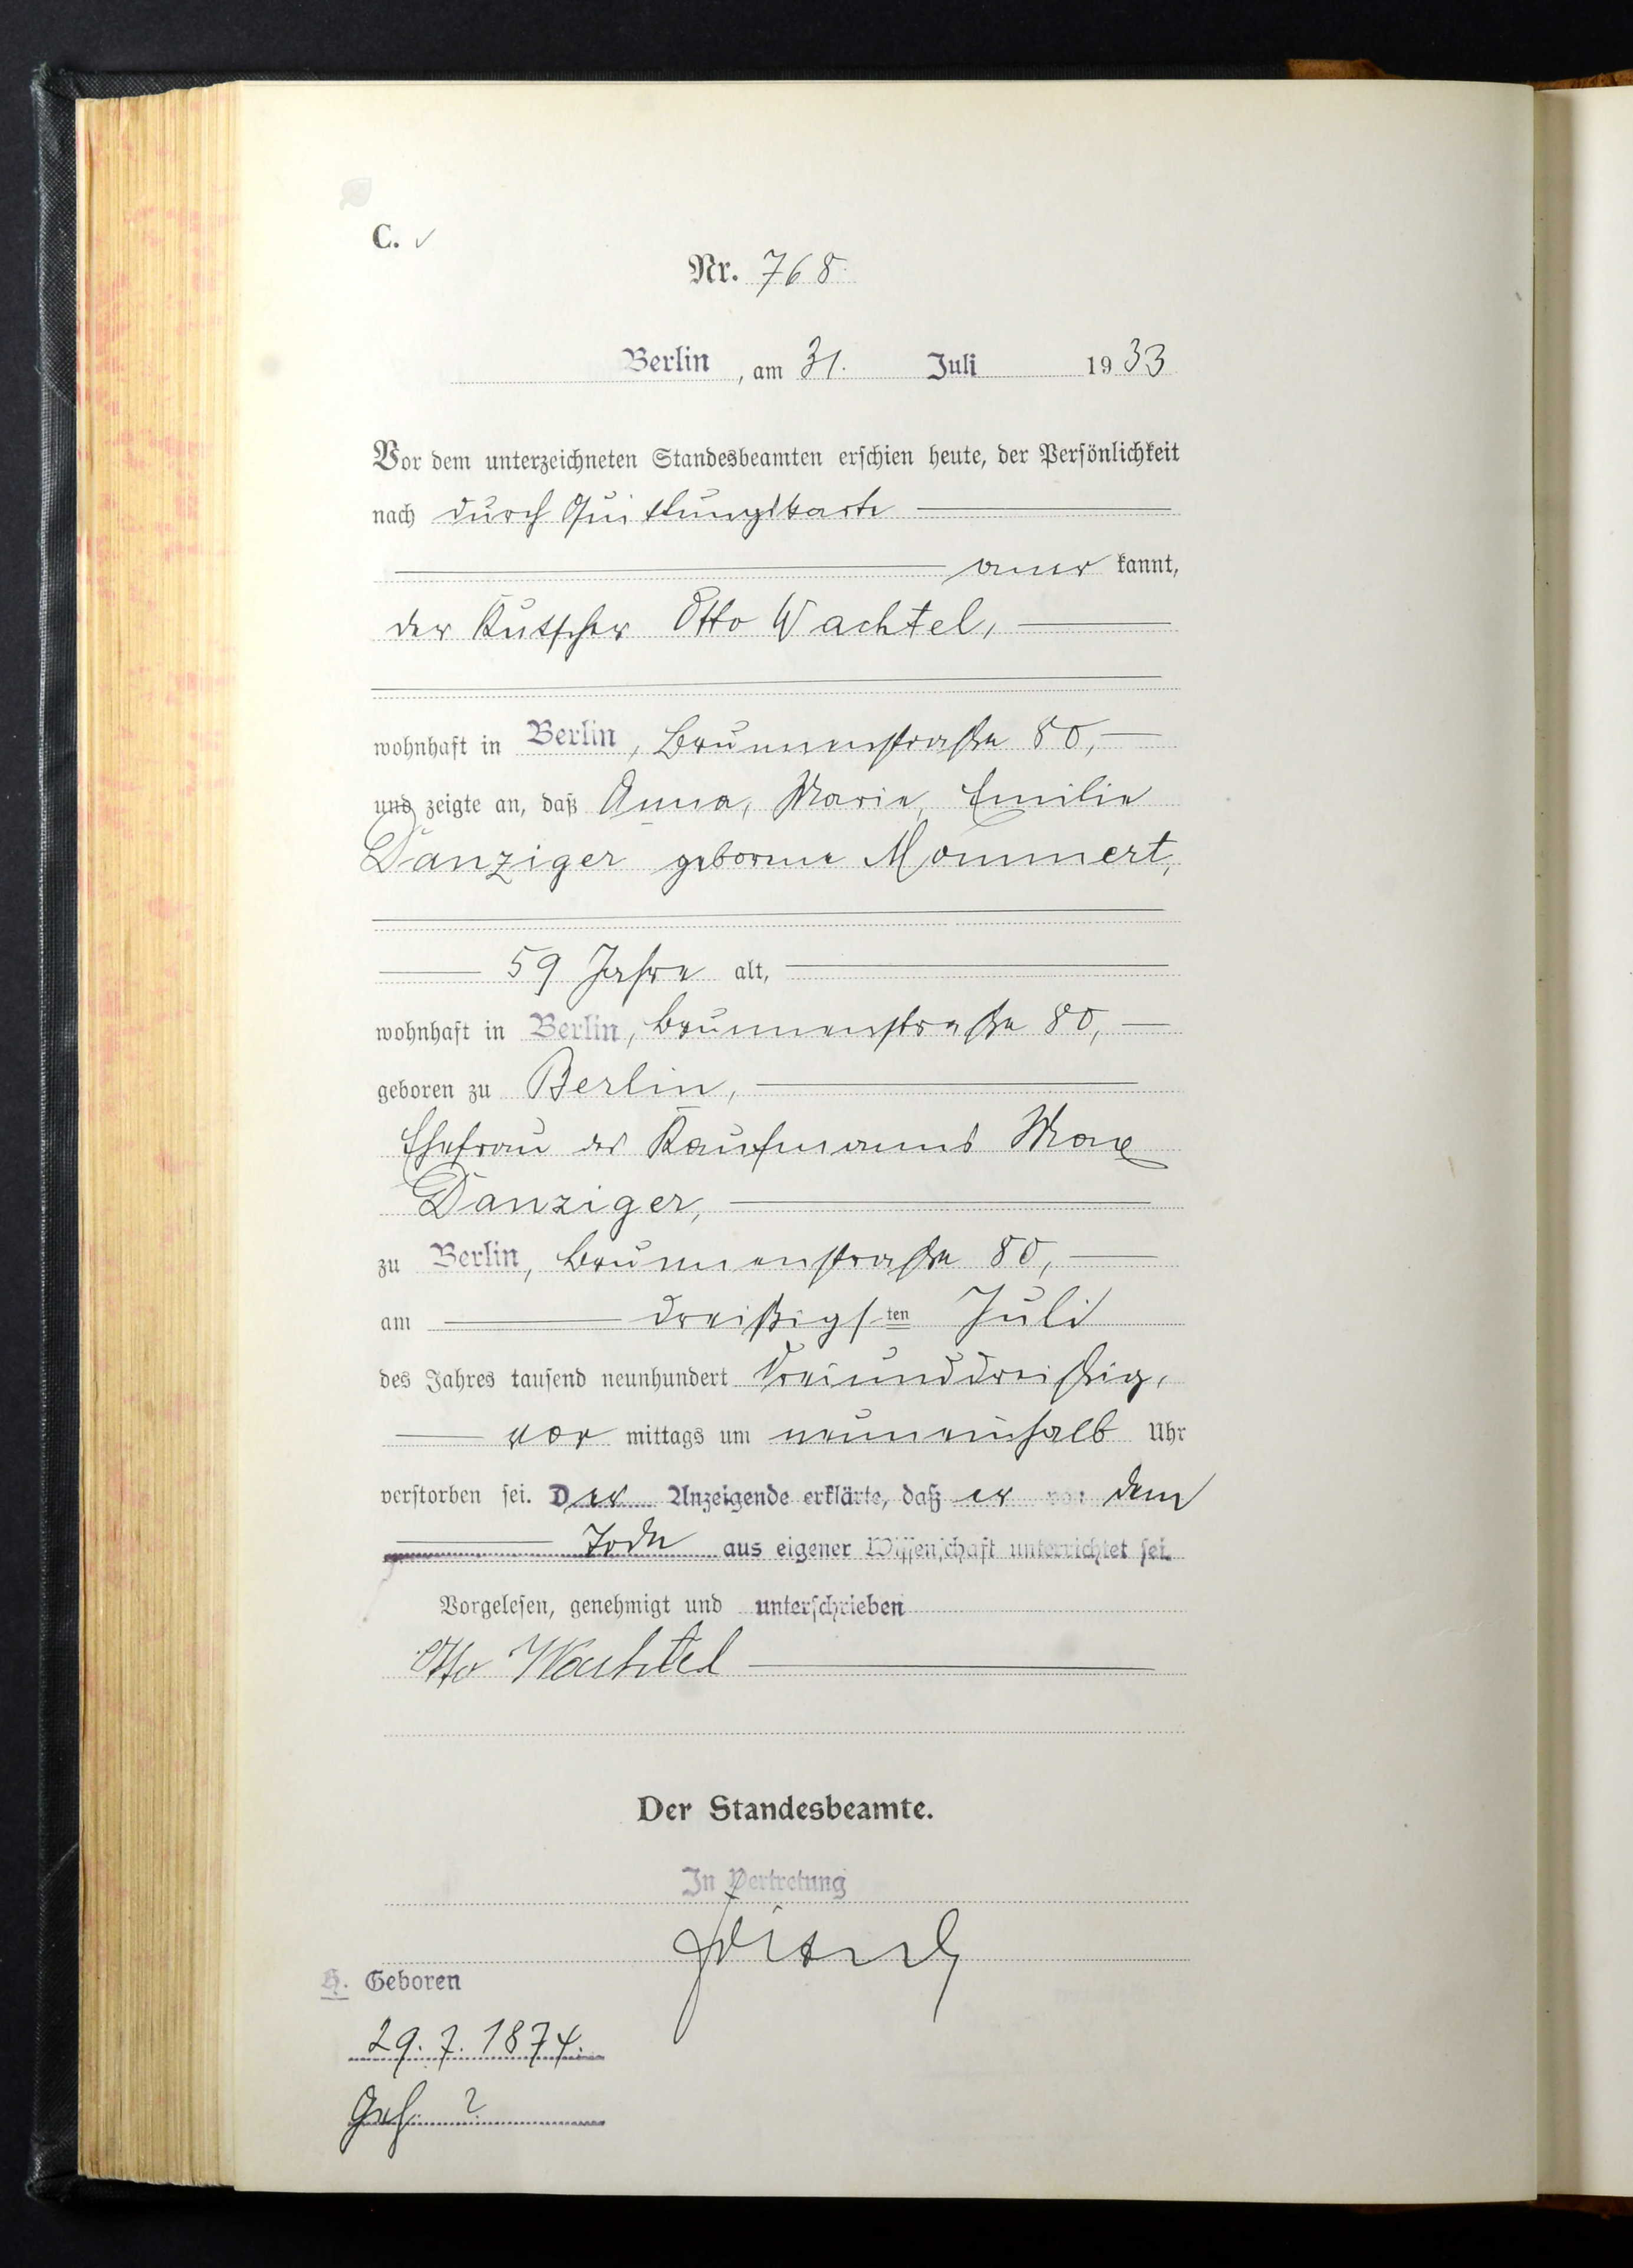 C. ✓
Nr. 768.
Berlin, am 31. Juli 1933
Vor dem unterzeichneten Standesbeamten erschien heute, der Persönlichkeit
nach durch Quittungskarte
anerkannt,
der Kutscher Otto Wachtel,
wohnhaft in Berlin, Brunnenstraße 80,
und zeigte an, daß Anna, Marie, Emilie
Danziger geborene Mommert,
59 Jahre alt,
wohnhaft in Berlin, Brunnenstraße 80,
geboren zu Berlin,
Ehefrau des Kaufmanns Max
Danziger,
zu Berlin, Brunnenstraße 80,
am dreißigsten Juli
des Jahres tausend neunhundert dreiunddreißig,
vormittags um neuneinhalb Uhr
verstorben sei. Der Anzeigende erklärte, daß er von dem
Tode aus eigener Wissenschaft unterrichtet sei.
Vorgelesen, genehmigt und unterschrieben
Otto Wachtel
Der Standesbeamte.
In Vertretung
H. Geboren
29. 7. 1874.
?